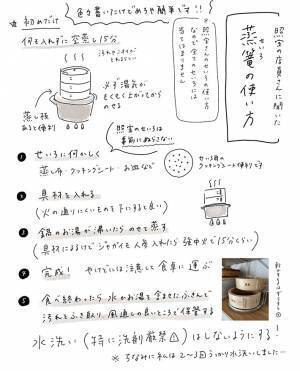 照宝の店員さんに聞いた
蒸篭の使い方
せいろ
色々書いたけどめちゃ簡単です!!
※照宝さんのせいろの使い方
なので全てのせいろには
当てはまりません
初めだけ
何も入れずに空蒸し15分
必ず湯気が
もくもく上がってから
のせる
蒸し板
あると便利
照宝のせいろは
事前にぬらさない
1 せいろに何かしく
蒸し布・クッキングシート・お皿など
せいろ用の
クッキングシート便利です
2 具材を入れる
(火の通りにくいものを下にすると良い)
3 鍋のお湯が沸いたらのせて蒸す
(具材によるけどジャガイモ人参入れたら強中火で15分くらい)
4 完成! やけどには注意して食卓に運ぶ
5 食べ終わったら水かお湯を含ませたふきんで
汚れをふき取り、風通しの良いところで保管する
水洗い(特に洗剤厳禁⚠)はしないようにする!
※ちなみに私は2〜3回うっかり水洗いしました…